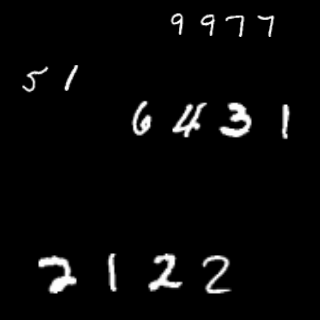 9977
51
6431
2122